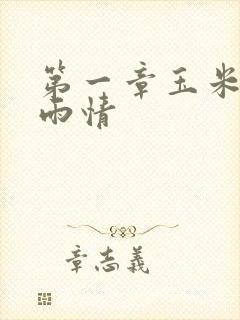 第一章玉米
雨情
章志義